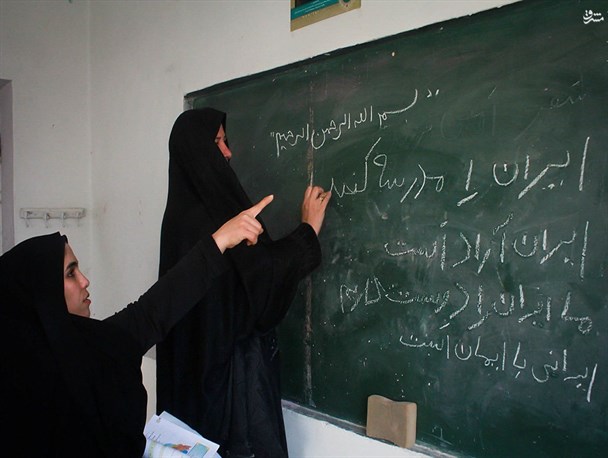 "بسم الله الرحمن الرحیم"
ایران را مدرسه کنید
ایران آزاد است
ما ایران را دوست داریم
ایرانی با ایمان است
مشرق